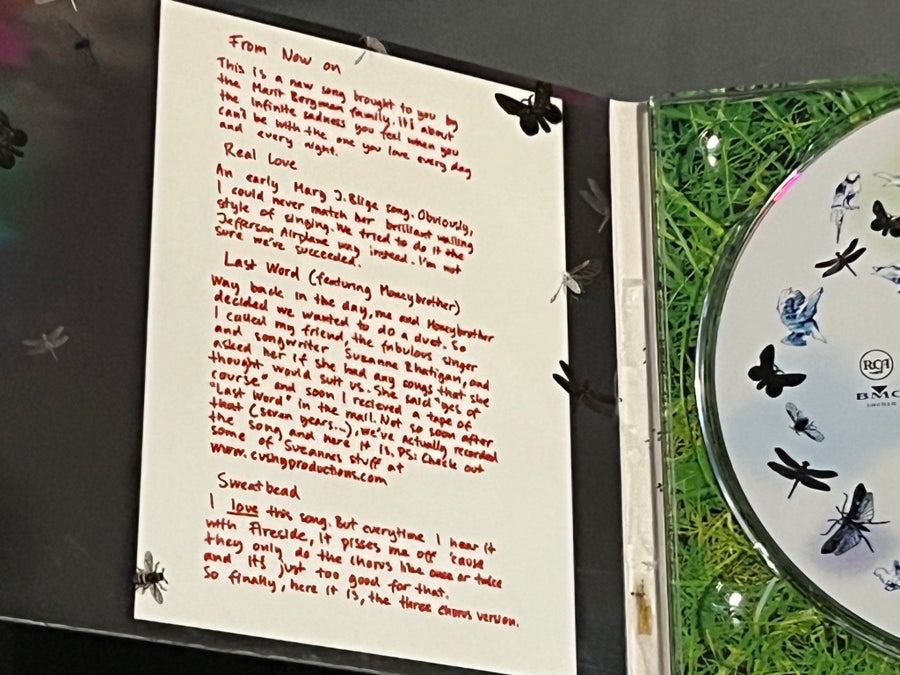 From Now on
This is a new song brought to you by
the Marit Bergman family. It's about
the infinite sadness you feel when you
can't be with the one you love every day
and every night.
Real Love
An early Mary J. Blige song. Obviously,
I could never match her brilliant wailing
style of singing. We tried to do it the
Jefferson Airplane way instead. I'm not
sure we've succeeded.
Last Word (featuring Moneybrother)
Way back in the day, me and Moneybrother
decided we wanted to do a duet. So
I called my friend, the fabulous singer
and songwriter Suzanne Rhatigan, and
asked her if she had any songs that she
thought would suit us. She said "yes of
course" and soon I recieved a tape of
"Last Word" in the mail. Not so soon after
that (seven years...), we've actually recorded
the song and here it is. PS: Check out
some of Suzannes stuff at
www.cushyproductions.com
Sweatbead
I love this song. But everytime I hear it
with Fireside, it pisses me off 'cause
they only do the chorus like once or twice
and it's just too good for that.
So finally, here it is, the three chorus version.
RCA
BMG